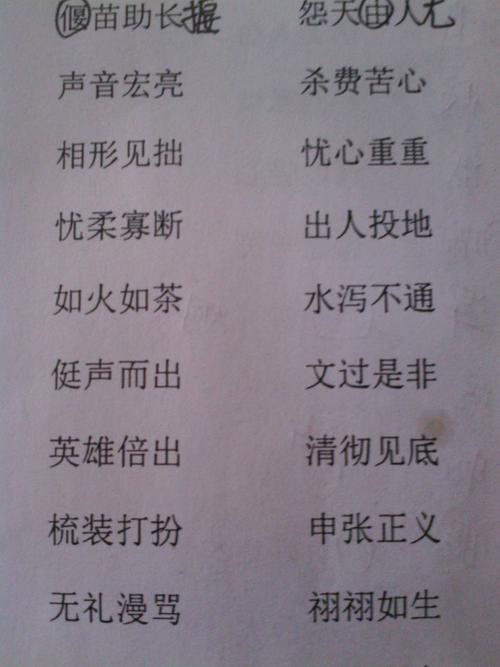 偃苗助长 怨天由人尤
声音宏亮 杀费苦心
相形见拙 忧心重重
忧柔寡断 出人投地
如火如茶 水泻不通
侹声而出 文过是非
英雄倍出 清彻见底
梳装打扮 申张正义
无礼漫骂 祤祤如生